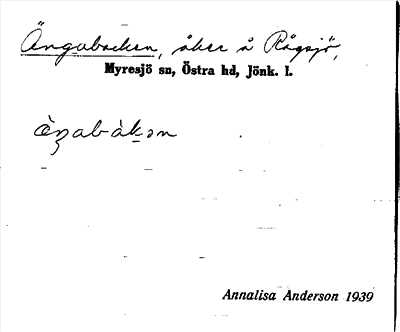 Ängabacken, åker å Rågsjö,
Myresjö sn, Östra hd, Jönk. l.
ängabàkən
Annalisa Anderson 1939